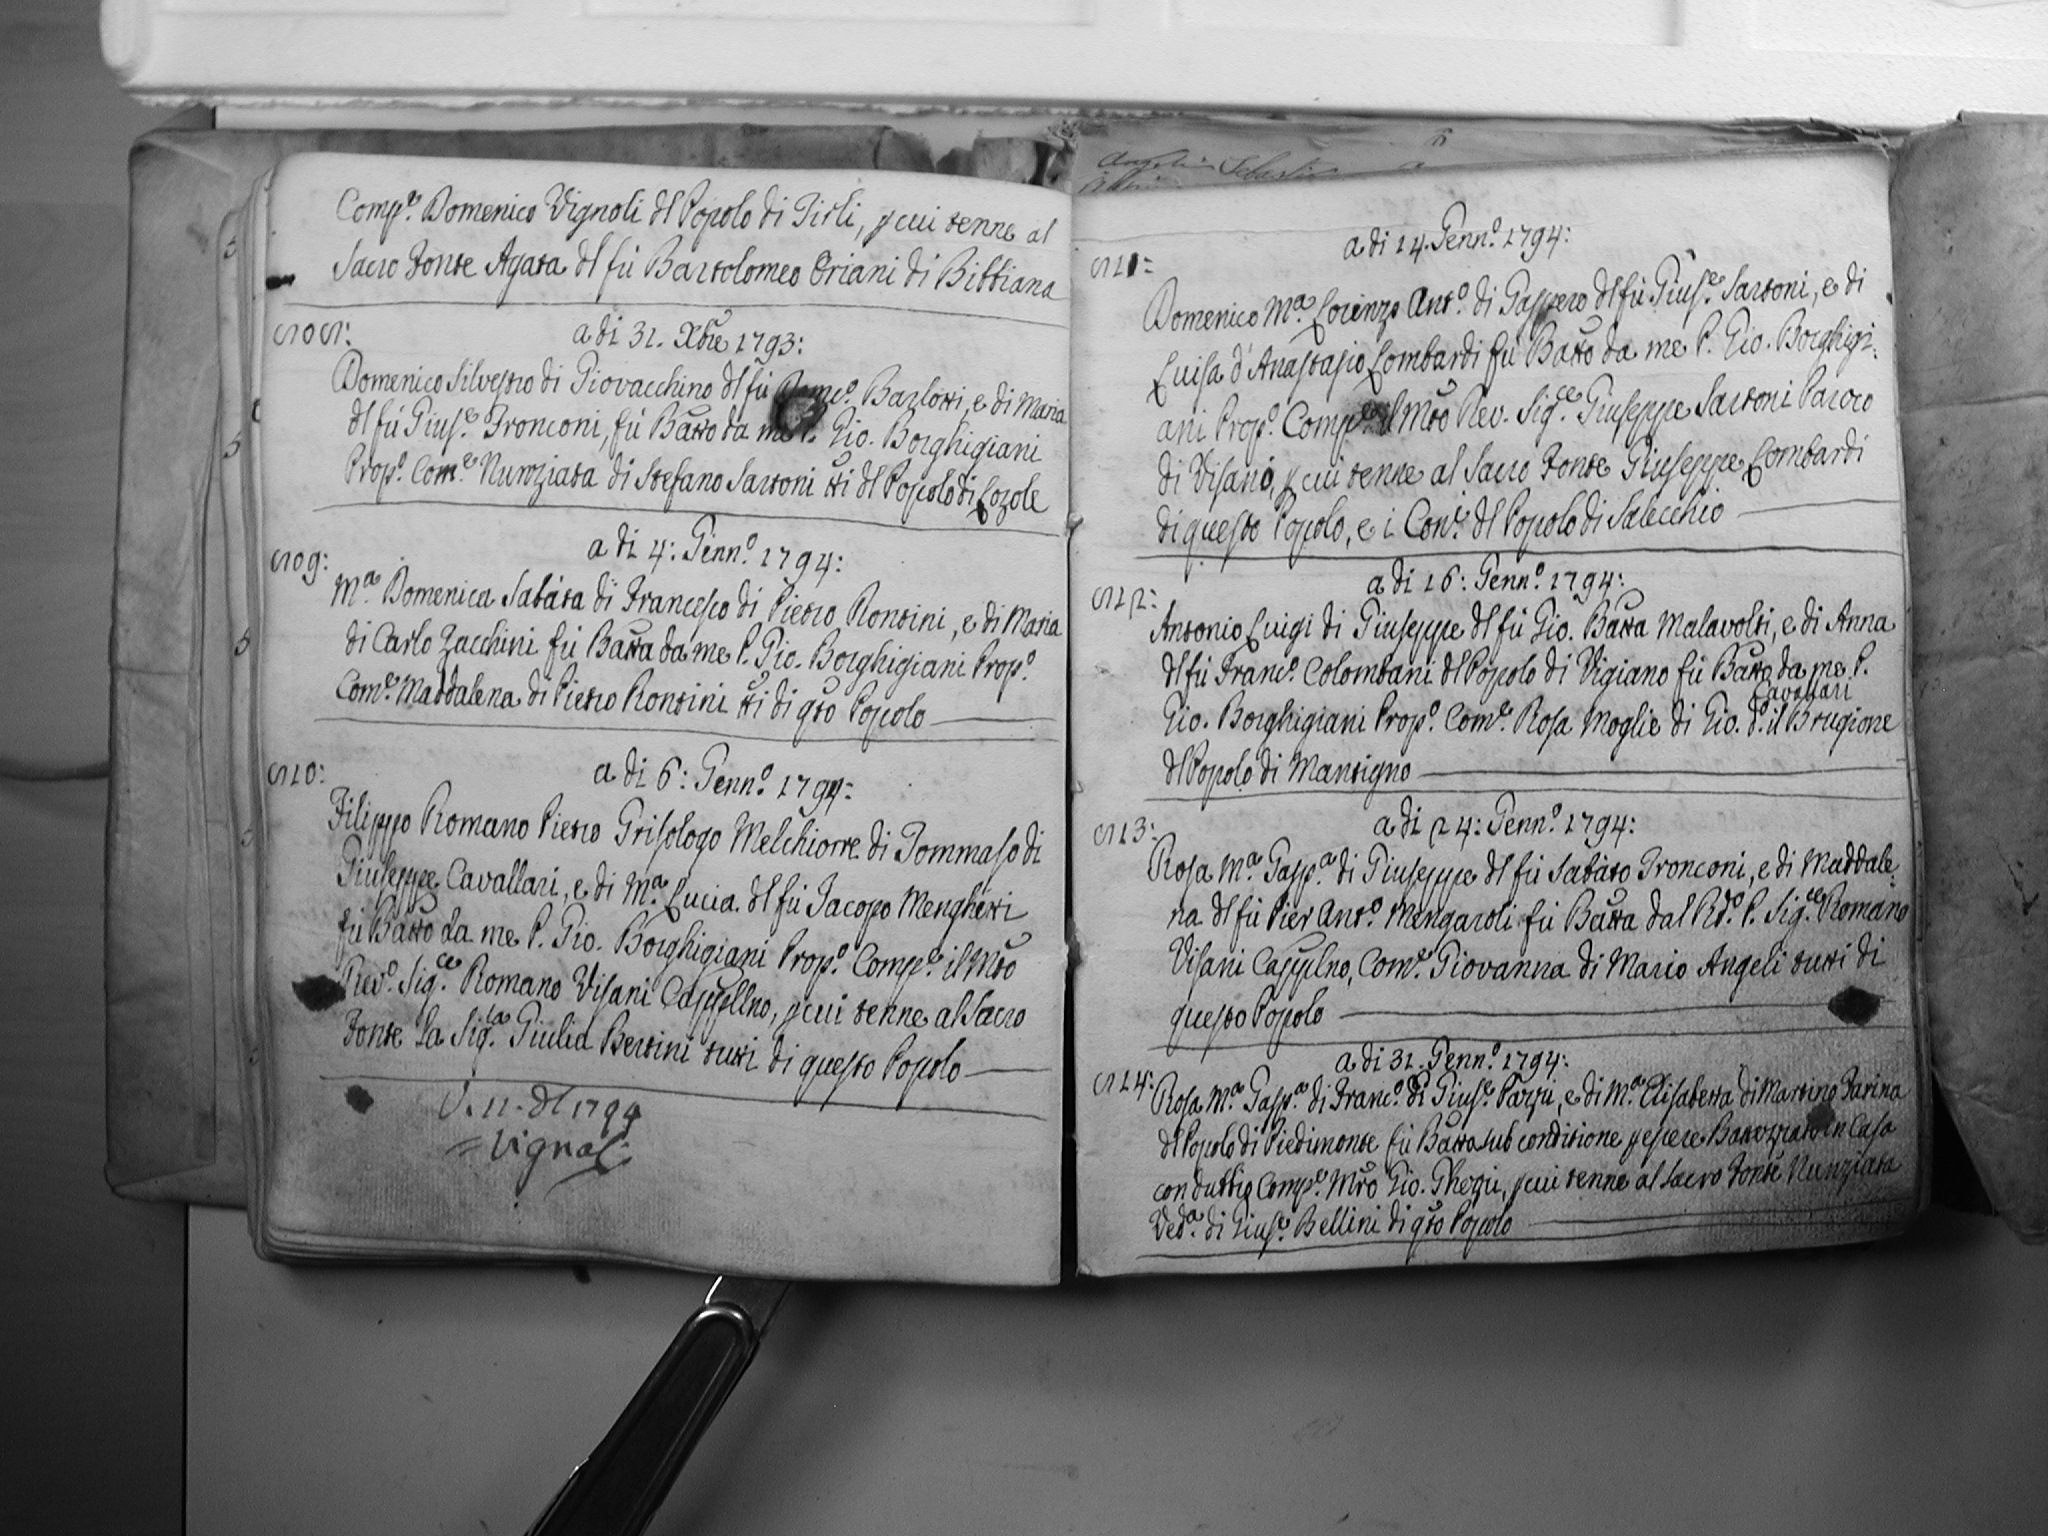 Comp.e Domenico Vignoli dl Popolo di Tirli, p cui tenne al
Sacro Fonte Agata dl fù Bartolomeo Oriani di Bibbiana
a di 31. Xbre 1793:
Domenico Silvestro di Giovacchino dl fù Domco. Barlotti, e di Maria
dl fù Gius.e Tronconi, fù Batto da me P. Gio. Borghigiani
Prop.o Com.e Nunziata di Stefano Sartoni tti dl Popolo di Lozole
509:
a di 4: Genn.o 1794:
M.a Domenica Sabata di Francesco di Pietro Rontini, e di Maria
di Carlo Zacchini fù Batta da me P. Gio. Borghigiani Prop.o
Com.e Maddalena di Pietro Rontini tti di qto Popolo
510:
a di 6: Genn.o 1794:
Filippo Romano Pietro Grisologo Melchiorre di Tommaso di
Giuseppe Cavallari, e di M.a Lucia dl fù Jacopo Menghetti
fù Batto da me P. Gio. Borghigiani Prop.o Comp.e il Mto
Rev.o Sig.ce Romano Visani Cappellno, p cui tenne al Sacro
Fonte la Sig.la Giulia Bertini tutti di questo Popolo
V. 11. dl 1794
= Vignal:
Angeli Sebastia
a di 14. Genn.o 1794:
511:
Domenico M.a Lorenzo Ant.o di Gaspero dl fù Gius.e Sartoni, e di
Luisa d'Anastasio Lombardi fù Batto da me P. Gio. Borghigi:
ani Prop.o Comp.e il Mto Rev. Sig.ce Giuseppe Sartoni Paroco
di Visano, p cui tenne al Sacro Fonte Giuseppe Lombardi
di questo Popolo, e i Con.i dl Popolo di Salecchio
a di 16: Genn.o 1794:
512:
Antonio Luigi di Giuseppe dl fù Gio. Batta Malavolti, e di Anna
dl fù Franc.o Colombani dl Popolo di Vigiano fù Batto da me P.
Cavallari
Gio. Borghigiani Prop.o Com.e Rosa Moglie di Gio. d.o il Brugione
dl Popolo di Mantigno
a di 24: Genn.o 1794:
513:
Rosa M.a Gasp.a di Giuseppe dl fù Sabato Tronconi, e di Maddale:
na dl fù Pier Ant.o Mengaroli fù Batta dal Rd.o P. Sig.ce Romano
Visani Cappllno, Com.e Giovanna di Mario Angeli tutti di
questo Popolo
a di 31. Genn.o 1794:
514:
Rosa M.a Gasp.a di Franc.o di Gius.e Parzii, e di M.a Elisabetta di Martino Farina
dl Popolo di Piedimonte fù Batta sub conditione p essere Battezzato in Casa
con dubbio Comp.e Mro Gio. Ghezii, p cui tenne al Sacro Fonte Nunziata
Ved.a di Gius.e Bellini di qto Popolo